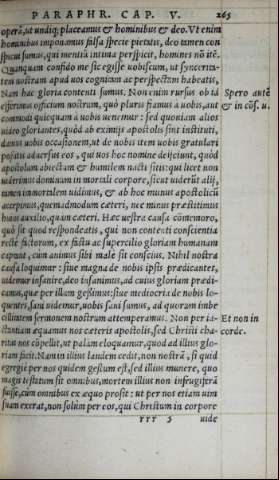 PARAPHR. CAP. V. 265
operā, ut undiq; placeamus & hominibus & deo. Ut enim
hominibus imponamus falsa specie pietatis, deo tamen con
spicui sumus, qui mentis intima perspicit, homines nō itē.
Quanquam confido me sic egisse uobiscum, ut synceritatem
nostram apud uos cognitam ac perspectam habeatis,
Nam hac gloria contenti sumus. Non enim rursus ob id
efferimus officium nostrum, quò pluris fiamus à uobis, aut
commodi quicquam à uobis uenemur: sed quoniam alios
uideo gloriantes, quòd ab eximijs apostolis sint instituti,
damus uobis occasionem, ut de nobis item uobis gratulari
possitis aduersus eos, qui uos hoc nomine despiciunt, quòd
apostolum abiectam & humilem nacti sitis: qui licet non
uiderimus dominum in mortali corpore, sicut uiderūt alij,
tamen immortalem uidimus, & ab hoc munus apostolicū
accepimus, quemadmodum cæteri, nec minus præstitimus
huius auxilio, quàm cæteri. Hæc uestra causa cōmemoro,
quò sit quod respondeatis, qui non contenti conscientia
recte factorum, ex fastu ac supercilio gloriam humanam
captant, cum animus sibi male sit conscius. Nihil nostra
causa loquimur: siue magna de nobis ipsis prædicantes,
uidemur insanire, deo insanimus, ad cuius gloriam prædicamus,
quæ per illum gessimus: siue mediocria de nobis loquentes,
sani uidemur, uobis sani sumus, ad quorum imbecillitatem
sermonem nostrum attemperamus. Non per iactantiam
æquamus nos cæteris apostolis, sed Christi charitas
nos cōpellit, ut palam eloquamur, quod ad illius gloriam
facit. Nam in illius laudem cedit, non nostrā, si quid
egregie per nos quidem gestum est, sed illius munere, quo
magis testatum sit omnibus, mortem illius non infrugiferā
fuisse, cum omnibus ex æquo prosit: ut per nos etiam uim
suam exerat, non solùm per eos, qui Christum in corpore
yyy 5 uide
Spero autē
& in cōs. u.
Et non in
corde.